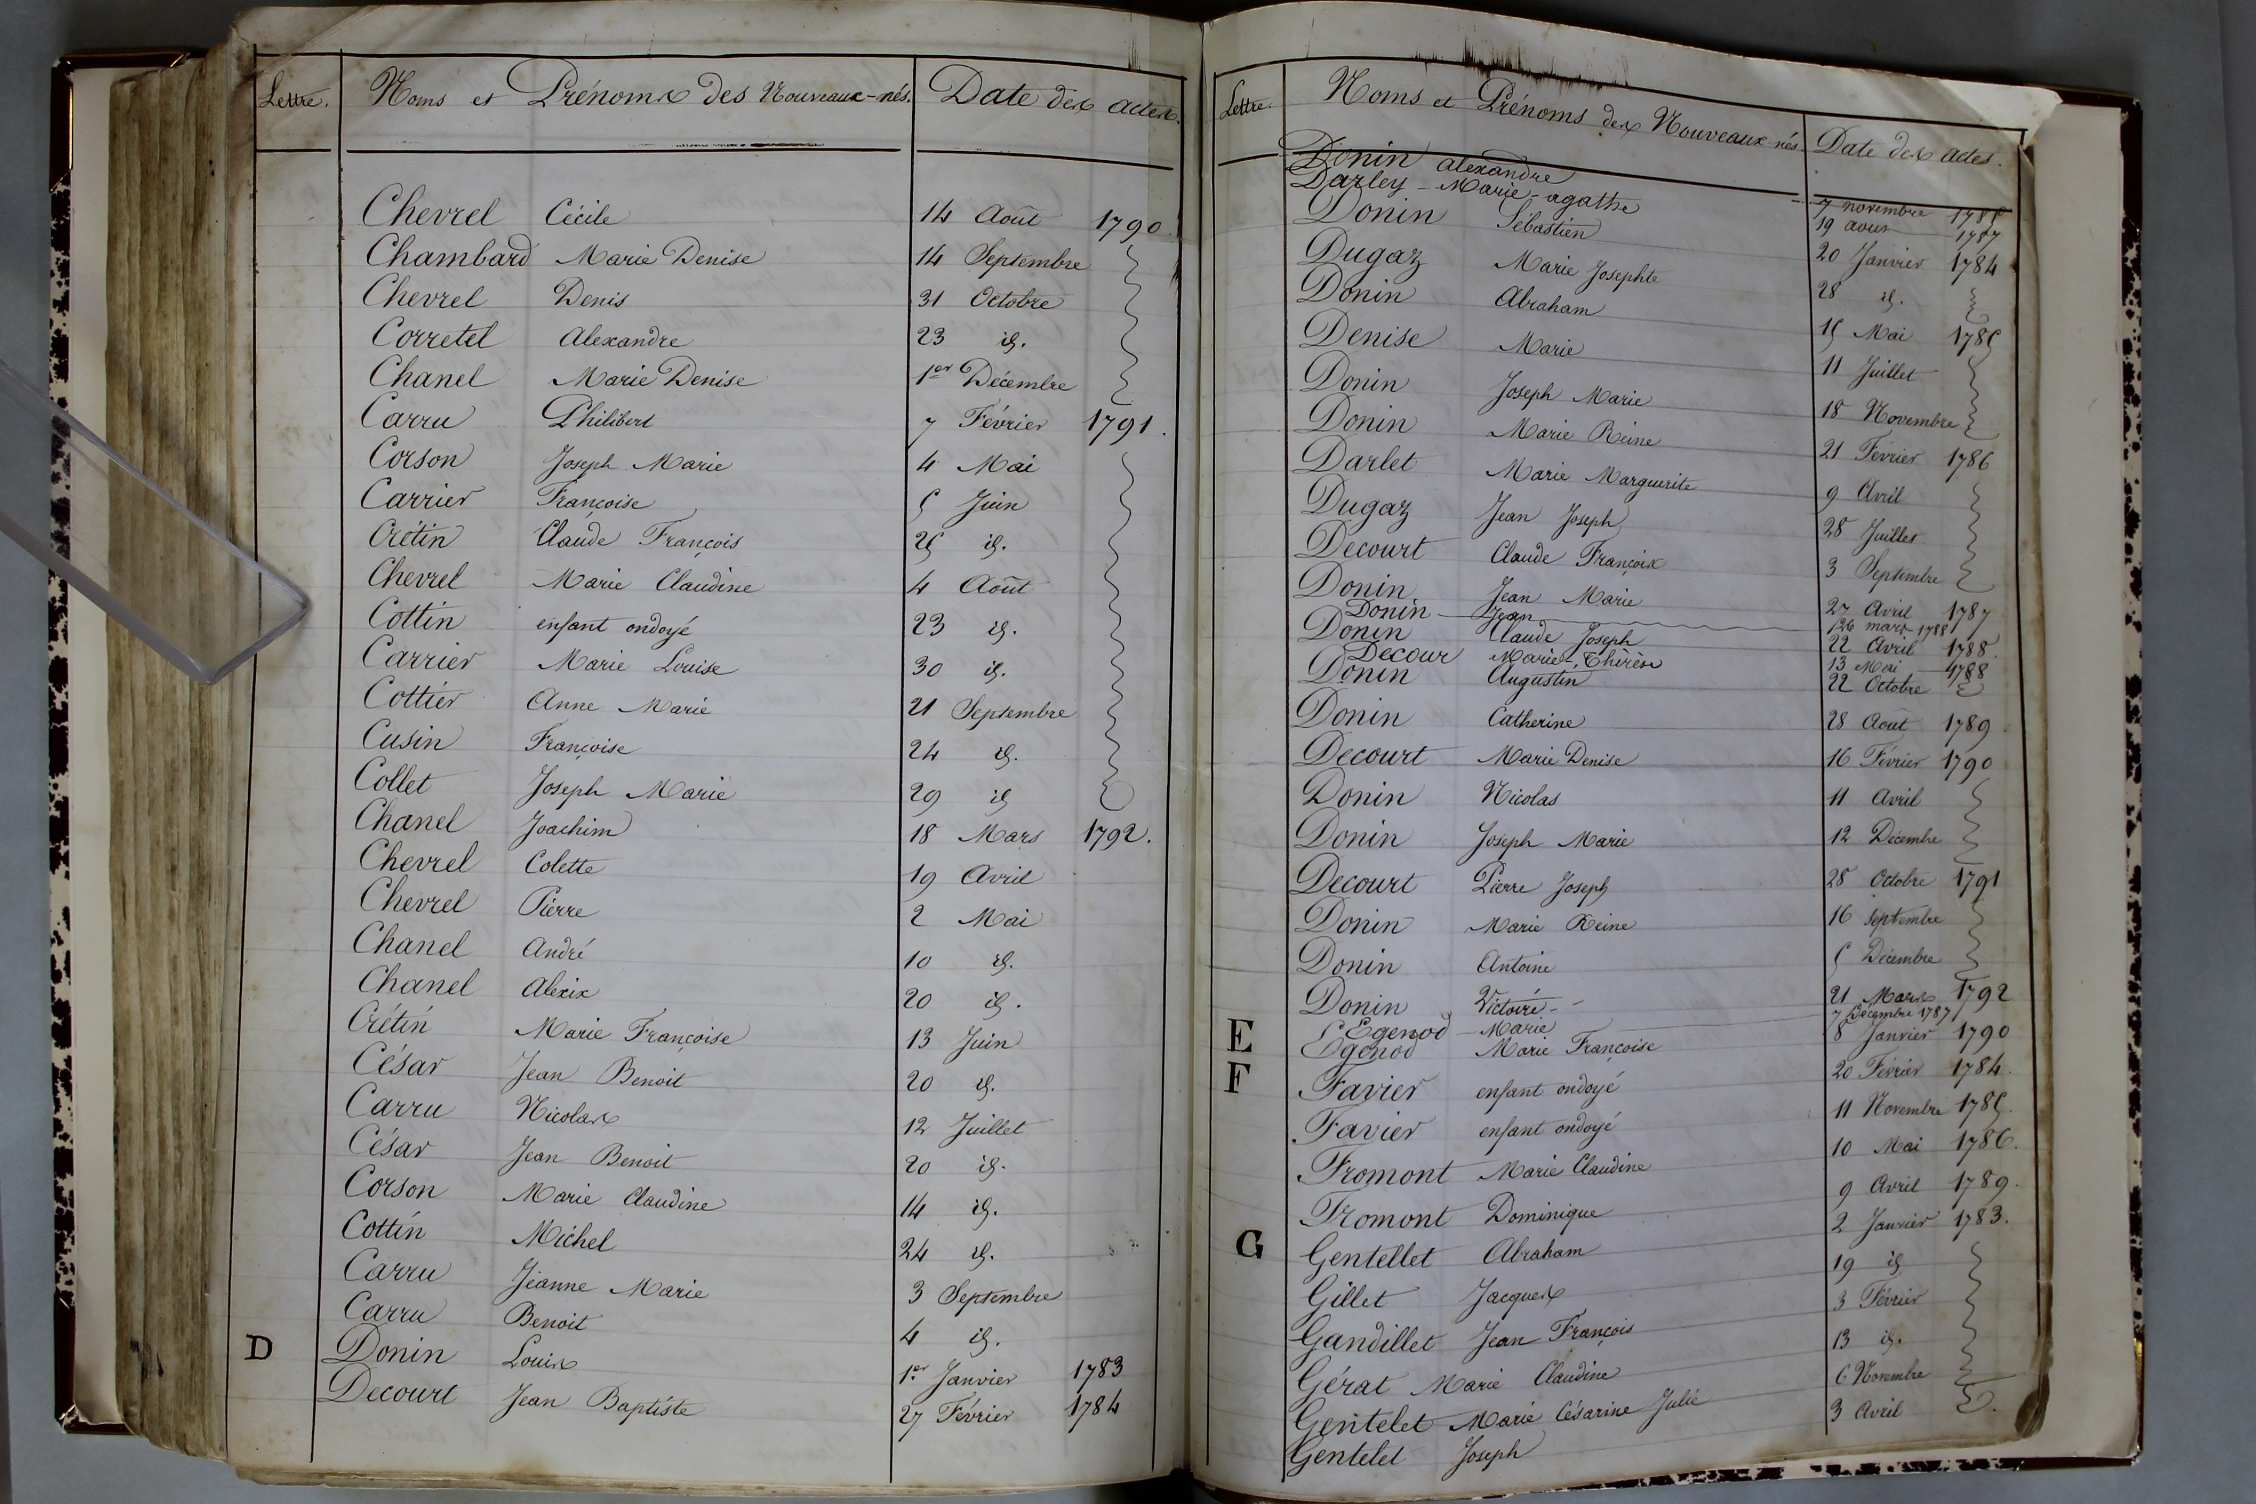 Lettre. Noms et Prénoms des Nouveaux-nés. Date des actes.
Chevrel Cécile 14 Août 1790
Chambard Marie Denise 14 Septembre
Chevrel Denis 31 Octobre
Corretel Alexandre 23 id.
Chanel Marie Denise 1er Décembre
Carru Philibert 7 Février 1791.
Corson Joseph Marie 4 Mai
Carrier Françoise 5 Juin
Crétin Claude François 25 id.
Chevrel Marie Claudine 4 Août
Cottin enfant ondoyé 23 id.
Carrier Marie Louise 30 id.
Cottier Anne Marie 21 Septembre
Cusin Françoise 24 id.
Collet Joseph Marie 29 id
Chanel Joachim 18 Mars 1792.
Chevrel Colette 19 Avril
Chevrel Pierre 2 Mai
Chanel André 10 id.
Chanel Alexis 20 id.
Crétin Marie Françoise 13 Juin
César Jean Benoit 20 id.
Carru Nicolas 12 Juillet
César Jean Benoit 20 id.
Corson Marie Claudine 14 id.
Cottin Michel 24 id.
Carru Jeanne Marie 3 Septembre
Carru Benoit 4 id.
D Donin Louis 1er Janvier 1783
Decourt Jean Baptiste 27 Février 1784
Lettre. Noms et Prénoms des Nouveaux-nés Date des actes.
Donin alexandre 7 novembre 1785
Darley - Marie-agathe 19 aout 1787
Donin Sébastien 20 Janvier 1784
Dugaz Marie Josephte 28 id.
Donin Abraham 15 Mai 1785
Denise Marie 11 Juillet
Donin Joseph Marie 18 Novembre
Donin Marie Reine 21 Février 1786
Darlet Marie Marguerite 9 Avril
Dugaz Jean Joseph 28 Juillet
Decourt Claude François 3 Septembre
Donin Jean Marie 27 Avril 1787
Donin Jean 26 mars 1788
Donin Claude Joseph 22 Avril 1788.
Decour Marie-Thérèse 13 Mai 1788
Donin Augustin 22 Octobre
Donin Catherine 28 Août 1789
Decourt Marie Denise 16 Février 1790
Donin Nicolas 11 Avril
Donin Joseph Marie 12 Décembre
Decourt Pierre Joseph 28 Octobre 1791
Donin Marie Reine 16 Septembre
Donin Antoine 5 Décembre
Donin Victoire - 21 Mars 1792
E Egenod - Marie 7 Décembre 1787
Egenod Marie Françoise 8 Janvier 1790
F Favier enfant ondoyé 20 Février 1784.
Favier enfant ondoyé 11 Novembre 1785.
Fromont Marie Claudine 10 Mai 1786.
Fromont Dominique 9 Avril 1789.
G Gentellet Abraham 2 Janvier 1783.
Gillet Jacques 19 id
Gandillet Jean François 3 Février
Gérat Marie Claudine 13 id.
Gentelet Marie Césarine Julie 6 Novembre
Gentelet Joseph 3 Avril